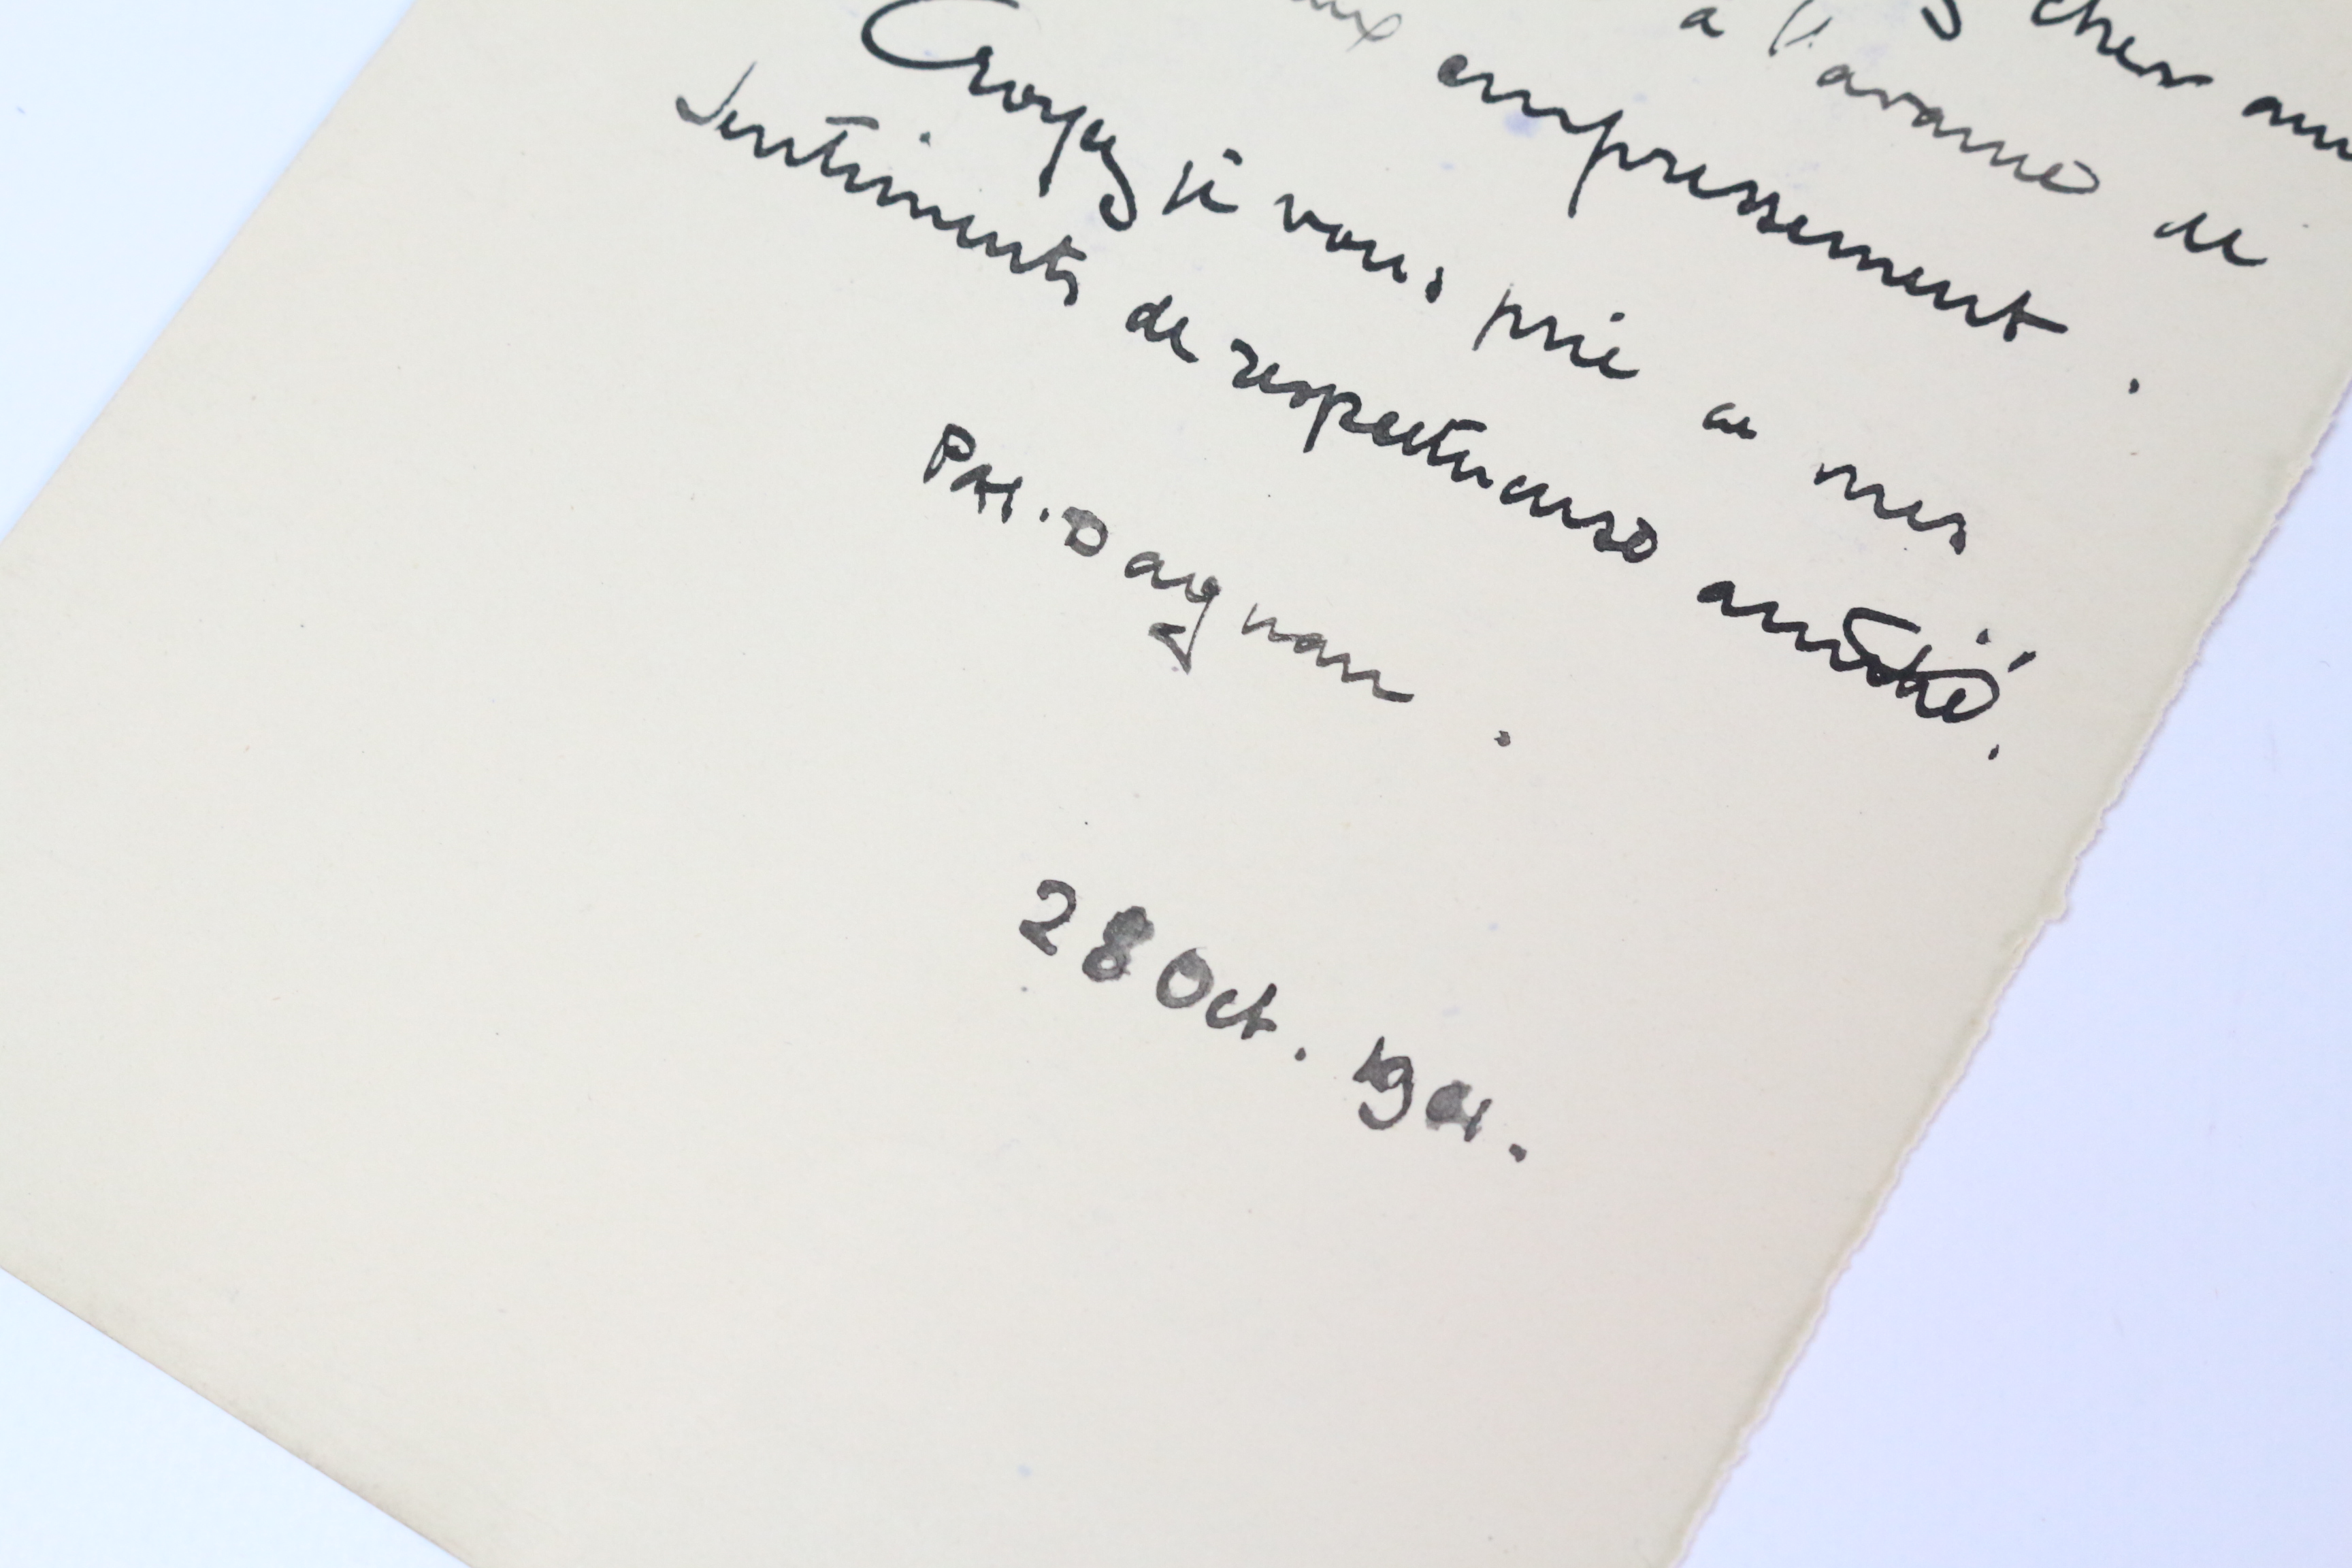 cher ami
à l'avance de
empressement .
Croyez je vous prie à mes
sentiments de respectueuse amitié.
PAJ. Dagnan .
28 Oct. 1901.